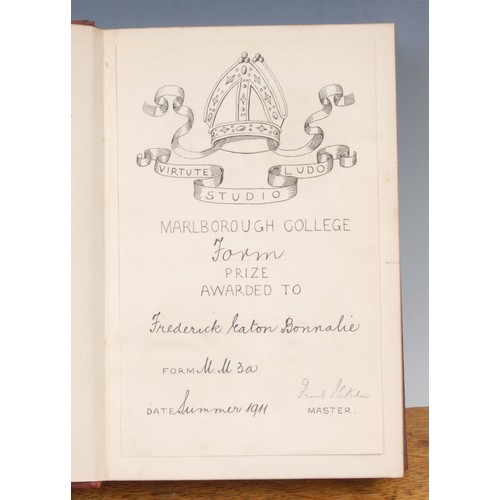 VIRTUTE STUDIO LUDO
MARLBOROUGH COLLEGE
Form
PRIZE
AWARDED TO
Frederick Eaton Bonnalie
FORM M M 3a
DATE Summer 1911
MASTER.